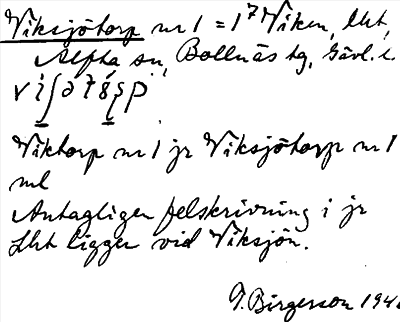 Viksjötorp nr 1 = 1⁷ Viken, lht,
Alfta sn, Bollnäs tg, Gävl. l.
Viktorp nr 1 jr Viksjötorp nr 1
ml
Antagligen felskrivning i jr
Lht ligger vid Viksjön.
G. Birgersson 194